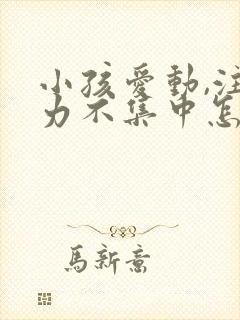 小孩愛動,注
力不集中怎
馬新意